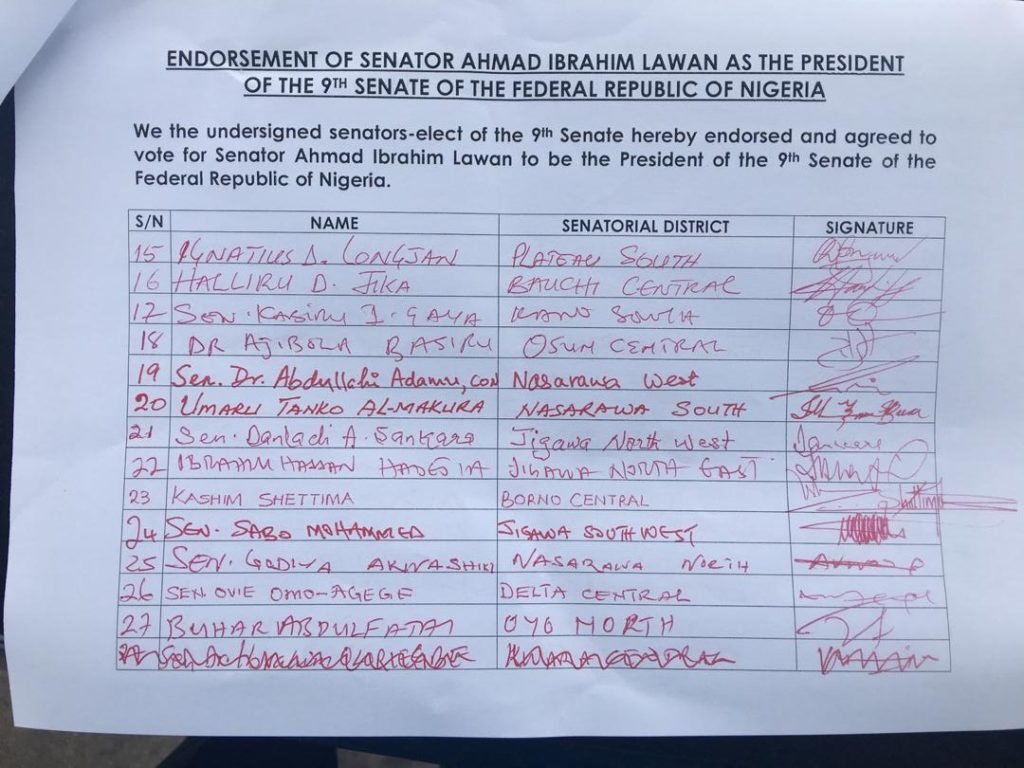 ENDORSEMENT OF SENATOR AHMAD IBRAHIM LAWAN AS THE PRESIDENT
OF THE 9TH SENATE OF THE FEDERAL REPUBLIC OF NIGERIA
We the undersigned senators-elect of the 9th Senate hereby endorsed and agreed to
vote for Senator Ahmad Ibrahim Lawan to be the President of the 9th Senate of the
Federal Republic of Nigeria.
S/N NAME SENATORIAL DISTRICT SIGNATURE
15 IGNATIUS D. LONGJAN PLATEAU SOUTH
16 HALLIRU D. JIKA BAUCHI CENTRAL
17 SEN. KABIRU I. GAYA KANO SOUTH
18 DR AJIBOLA BASIRU OSUN CENTRAL
19 Sen. Dr. Abdullahi Adamu, CON Nasarawa West
20 UMARU TANKO AL-MAKURA NASARAWA SOUTH
21 Sen. Danladi A. Sankara Jigawa North West
22 IBRAHIM HASSAN HADEJIA JIGAWA NORTH EAST
23 KASHIM SHETTIMA BORNO CENTRAL Shettima
24 SEN. SABO MOHAMMED JIGAWA SOUTH WEST
25 SEN. GODIYA AKWASHIKI NASARAWA NORTH
26 SEN OVIE OMO-AGEGE DELTA CENTRAL
27 BUHARI ABDULFATAI OYO NORTH